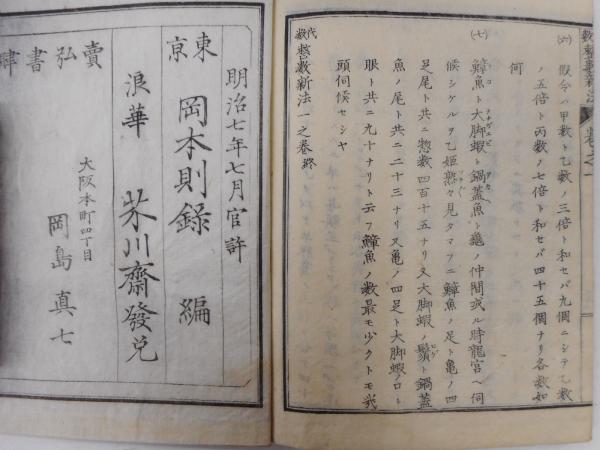 ㈥ 假令ハ甲数ト乙数ノ三倍ト和セバ九個ニシテ乙数
ノ五倍ト丙数ノ七倍ト和セバ四十五個ナリ各数如
何
㈦ 鱆魚ト大脚蝦ト鍋蓋魚ト亀ノ仲間或ル時龍宮ヘ伺
候シケルヲ乙姫熟々見タマフニ鱆魚ノ足ト亀ノ四
足ト共ニ惣数四百十五ナリ又大脚蝦ノ鬚ト鍋蓋
魚ノ尾ト共ニ二十三ナリ又亀ノ四足ト大脚蝦ノ
眼ト共ニ九十ナリト云フ鱆魚ノ数最モ少クトモ幾
頭伺候セシヤ
代数整数新法一之巻終
明治七年七月官許
東京 岡本則録 編
浪華 芥川齋發兌
大阪本町四丁目
賣弘書肆 岡島真七